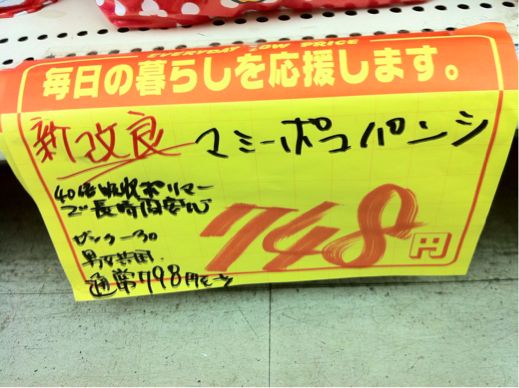 EVERYDAY LOW PRICE
毎日の暮らしを応援します。
新改良 マミーポコパンツ
40倍吸収ポリマー
で長時間安心
ビッグ-30
男女共用
通常798円を
748円